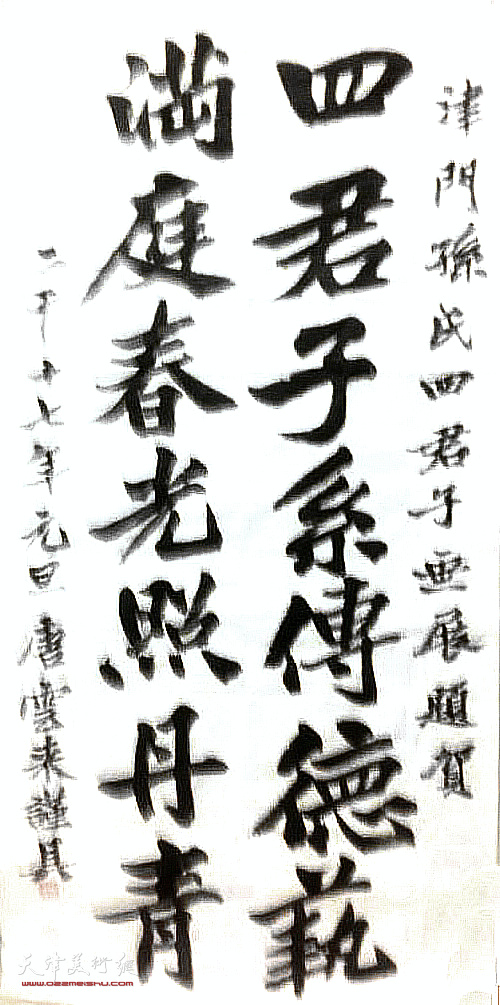 津門孫氏四君子畫展題賀
四君子系傳德藝
滿庭春光照丹青
二千十七年元旦唐雲来謹具
天津美术网
www.022meishu.com